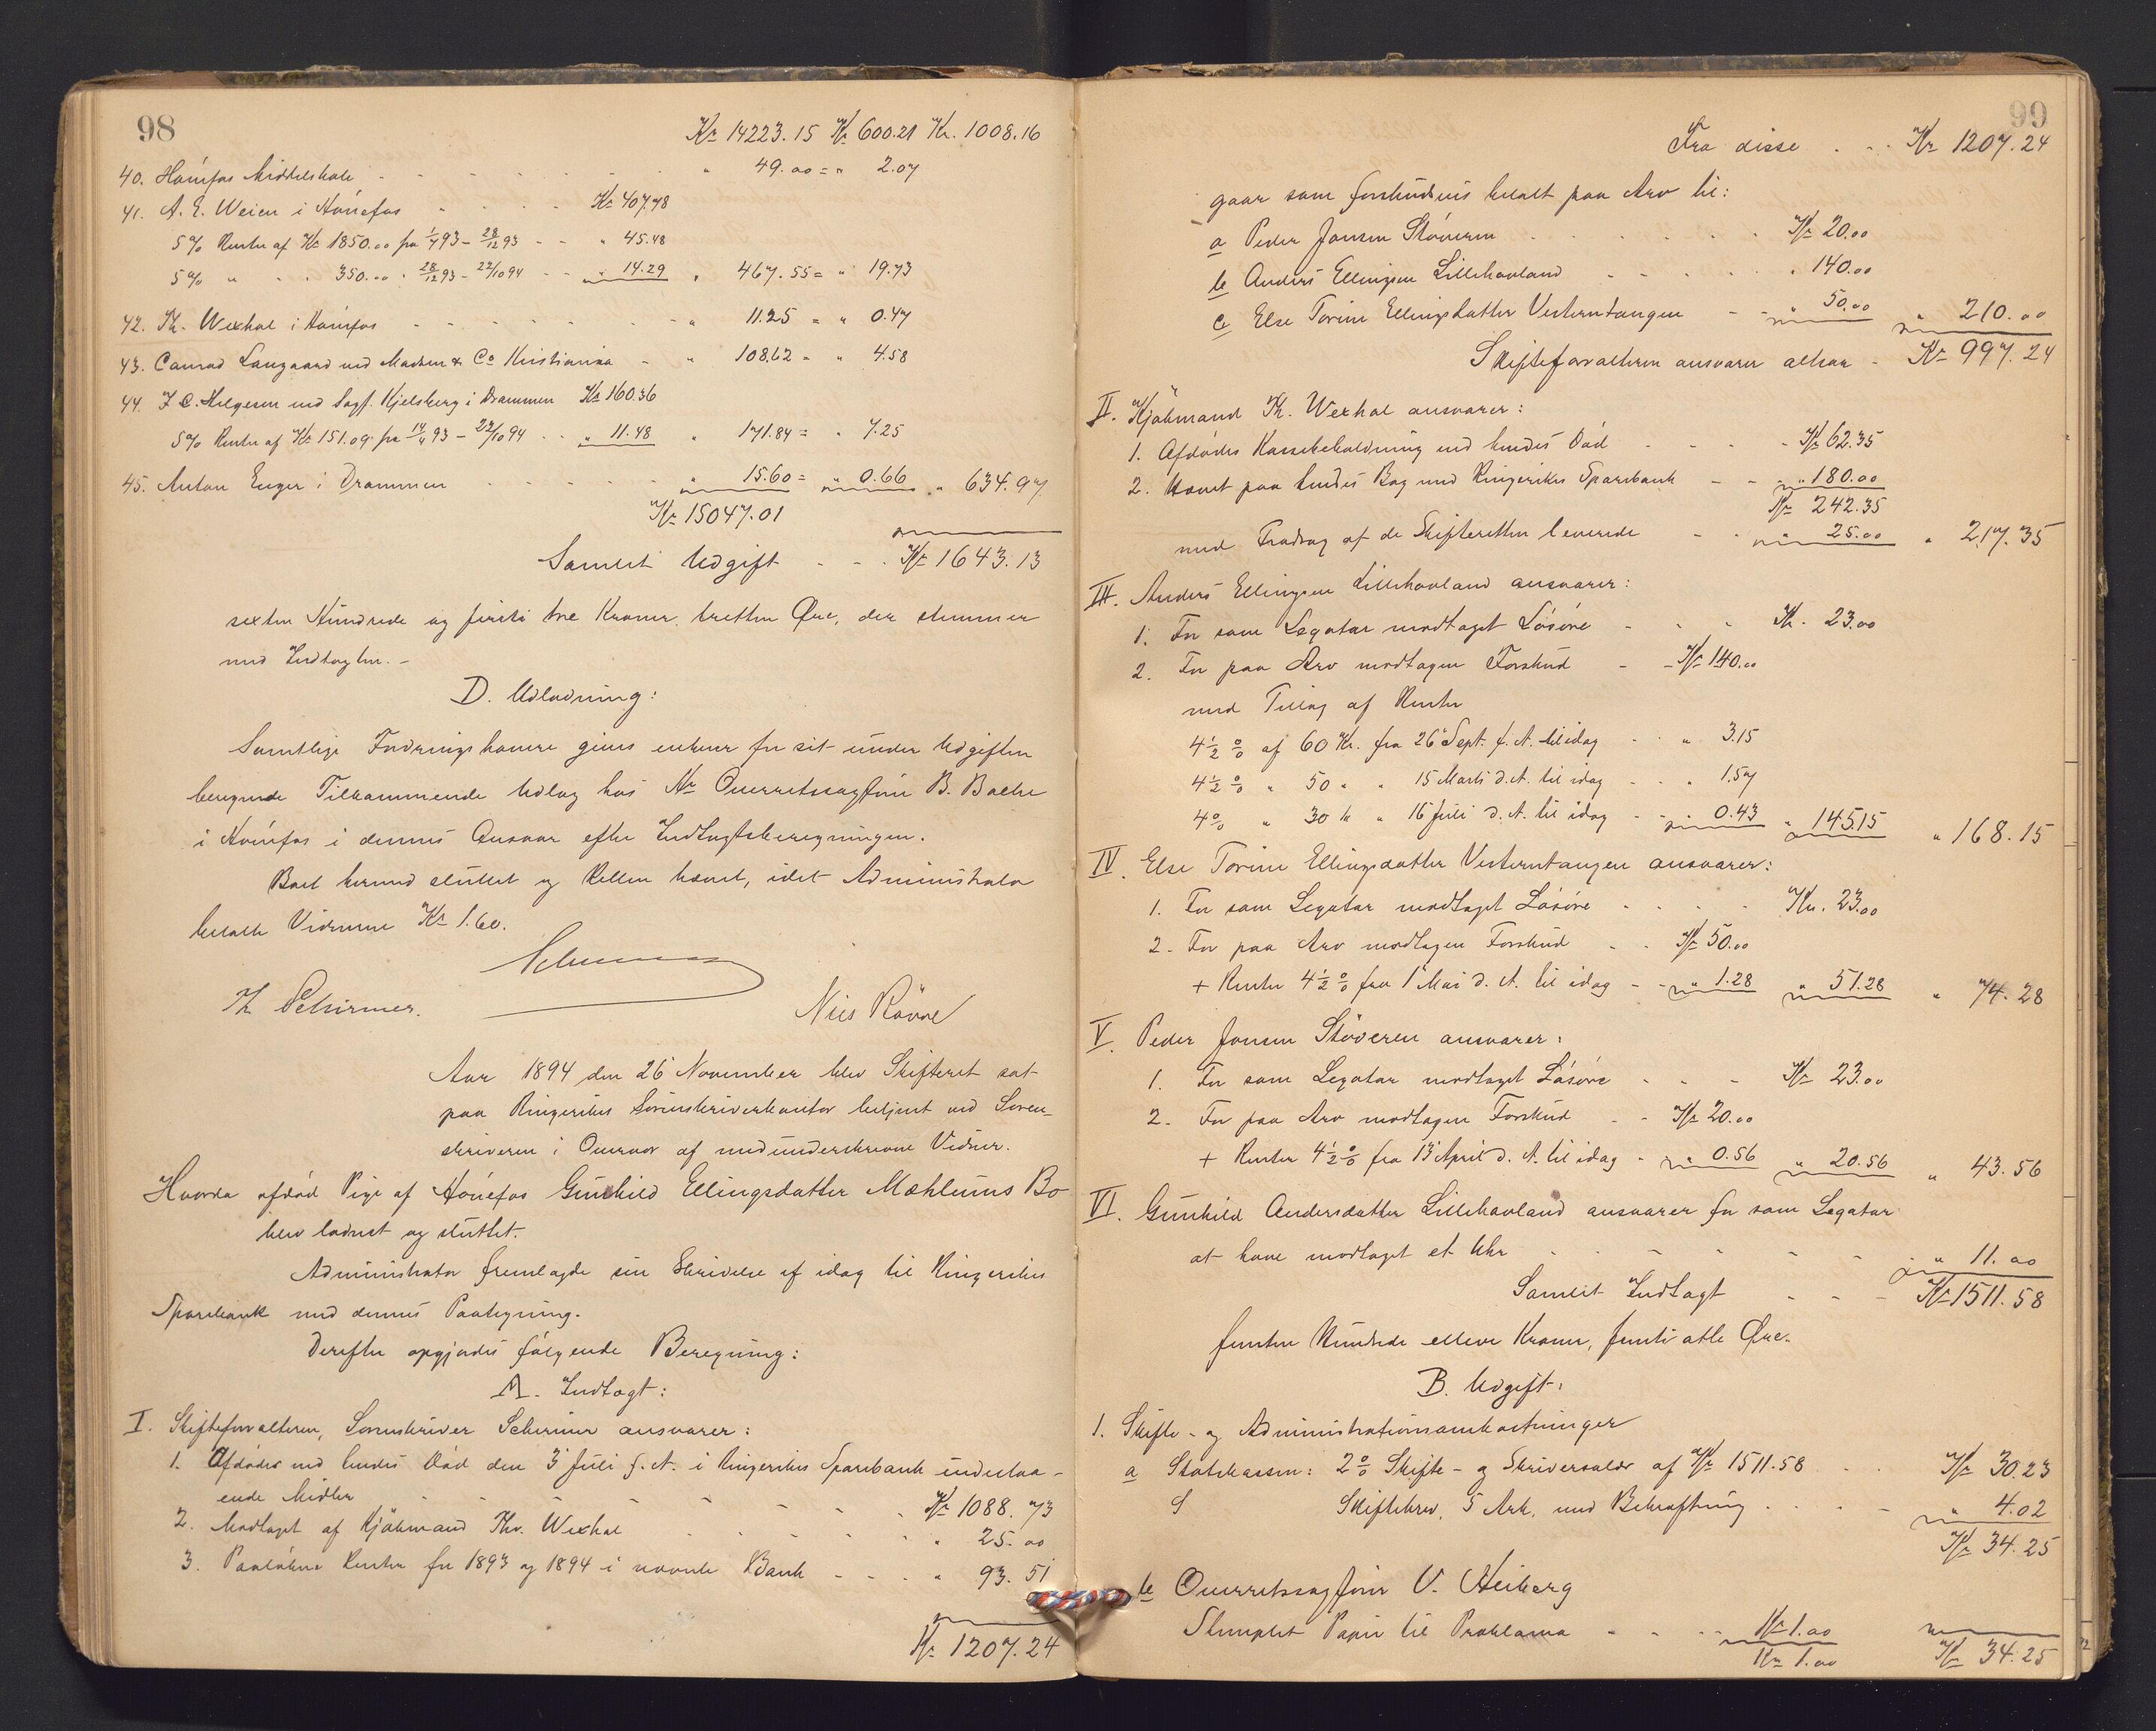 98
Kr 14223.15 Kr 600.21 Kr. 1008.16
40. Hønefos Middelskole - - - - - " 49.00 = " 2.07
41. A. E. Weien i Hønefos - - - Kr 407.78
5% Renter af Kr 1850.00 fra 1/7 93 - 28/12 93 - - " 45.48
5% " " 350.00 " 28/12 93 - 22/10 94 - - " 14.29 " 467.55 = " 19.73
42. Th. Wexhal i Hønefos - - - - - " 11.25 = " 0.47
43. Conrad Langaard ved Madsen & Co Kristiania - " 108.62 = " 4.58
44. F. C. Helgesen ved Sagf. Kjelsberg i Drammen Kr 160.36
5% Renter af Kr 151.09 fra 14/4 93 - 22/10 94 - - " 11.48 " 171.84 = " 7.25
45. Anton Enger i Drammen - - - - - " 15.60 = " 0.66 " 634.97
Kr 15047.01
Samlet Udgift - - - Kr 1643.13
sexten Hundrede og firti tre Kroner, tretten Øre, der stemmer
med Indtægten. -
D. Udlodning:
Samtlige Fordringshavere gives enhver for sit under Udgiften
beregnede Tilkommende Udlæg hos Hr Overretssagfører B. Bache
i Hønefos i dennes Ansvar efter Indtægtsberegningen.
Boet hermed sluttet og Retten hævet, idet Administrator
betalte Vidnerne Kr 1.60.
Schirmer
Th Schirmer.
Nils Rønne
Aar 1894 den 26 November blev Skifteret sat
paa Ringerikes Sorenskriverkontor betjent ved Soren-
skriveren i Overvær af medunderskrevne Vidner.
Hvorda afdød Pige af Hønefos Gunhild Ellingsdatter Mæhlums Bo
blev lodnet og sluttet.
Administrator fremlagde sin Skrivelse af idag til Ringerikes
Sparebank med dennes Paategning.
Derefter opgjordes følgende Beregning:
A. Indtægt:
I. Skifteforvalteren, Sorenskriver Schirmer ansvarer:
1. Afdødes ved hendes Død den 3' Juli f. A. i Ringerikes Sparebank indestaa-
ende Midler - - - - - Kr 1088.73
2. Modtaget af Kjøbmand Thv. Wexhal - - - - " 25.00
3. Paaløbne Renter for 1893 og 1894 i nævnte Bank - - - " 93.51
Kr 1207.24
99
Fra disse - - - Kr 1207.24
gaar som forskudsvis betalt paa Arv til:
a Peder Jonsen Støveren - - - - - Kr 20.00
b Anders Ellingsen Lillehovland - - - - " 140.00
c Else Torine Ellingsdatter Vesterntangen - - " 50.00 " 210.00
Skifteforvalteren ansvarer altsaa - Kr 997.24
II. Kjøbmand Th. Wexhal ansvarer:
1. Afdødes Kassebeholdning ved hendes Død - - - - Kr 62.35
2. Hævet paa hendes Bog med Ringerikes Sparebank - - " 180.00
Kr 242.35
med Fradrag af de Skifteretten leverede - - " 25.00 " 217.35
III. Anders Ellingsen Lillehovland ansvarer:
1. For som Legatar modtaget Løsøre - - - Kr. 23.00
2. For paa Arv modtagen Forskud - - Kr 140.00
med Tillæg af Renter
4 1/2 % af 60 Kr. fra 26 Sept. f. A. til idag - - " 3.15
4 1/2 % " 50 " " 15 Marts d. A. til idag - - " 1.57
4 % " 30 " " 16 Juli d. A. til idag - - " 0.43 " 145.15 " 168.15
IV. Else Torine Ellingsdatter Vesterntangen ansvarer:
1. For som Legatar modtaget Løsøre - - - - Kr. 23.00
2. For paa Arv modtagen Forskud - - Kr 50.00
+ Renter 4 1/2 % fra 1 Mai d. A. til idag - - " 1.28 " 51.28 " 74.28
V. Peder Jonsen Støveren ansvarer:
1. For som Legatar modtaget Løsøre - - - Kr 23.00
2. For paa Arv modtagen Forskud - - Kr 20.00
+ Renter 4 1/2 % fra 13 April d. A. til idag - " 0.56 " 20.56 " 43.56
VI. Gunhild Andersdatter Lillehovland ansvarer for som Legatar
at have modtaget et Uhr - - - - - - " 11.00
Samlet Indtægt - - - Kr 1511.58
femten Hundrede elleve Kroner, femti otte Øre.
B. Udgift:
1. Skifte- og Administrationsomkostninger
a Statskassen: 2 % Skifte- og Skriversalær af Kr 1511.58 - - Kr 30.23
S Skiftebrev, 5 Ark, med Bekræftning - - - - " 4.02
Kr 34.25
b Overretssagfører V. Heiberg
Stemplet Papir til Proklama - - - - Kr 1.00
Kr 1.00 Kr 34.25